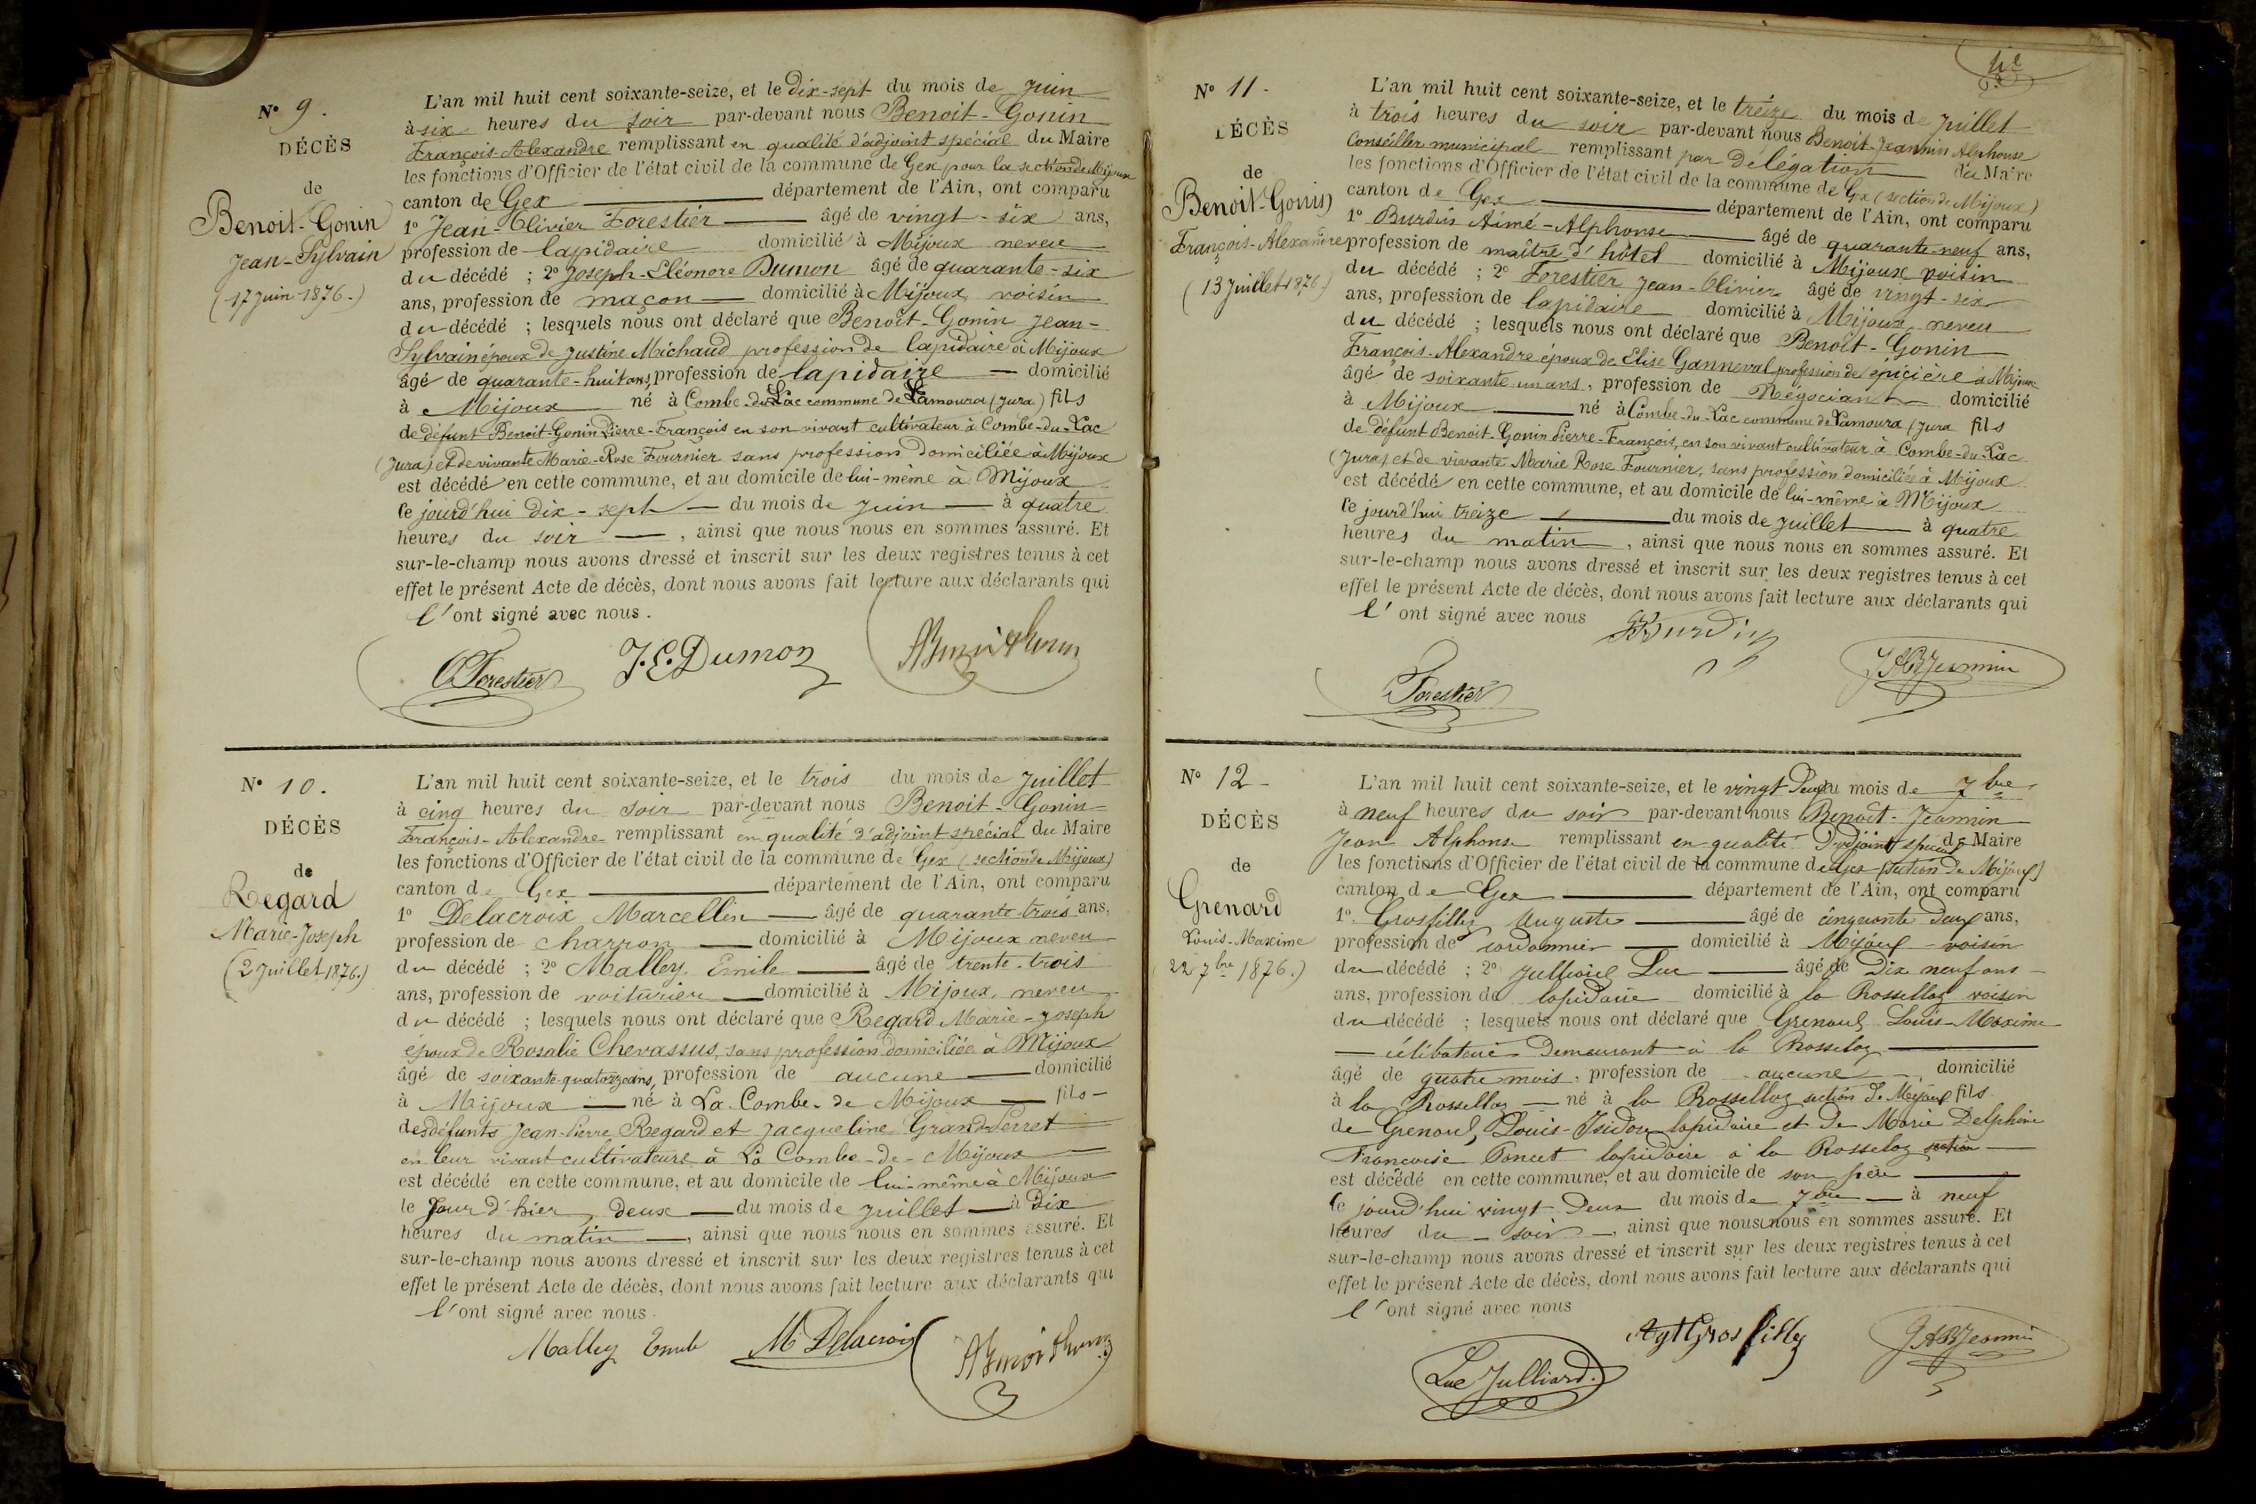 N° 9.
DÉCÈS
de
Benoit-Gonin
Jean-Sylvain
(17 Juin 1876.)
L'an mil huit cent soixante-seize, et le dix-sept du mois de Juin
à six heures du soir par-devant nous Benoit-Gonin
François-Alexandre remplissant en qualité d'adjoint spécial du Maire
les fonctions d'Officier de l'état civil de la commune de Gex pour la section de Mijoux
canton de Gex département de l'Ain, ont comparu
1° Jean-Olivier Forestier âgé de vingt-six ans,
profession de lapidaire domicilié à Mijoux neveu
du décédé ; 2° Joseph-Eléonore Dumon âgé de quarante-six
ans, profession de maçon domicilié à Mijoux, voisin
du décédé ; lesquels nous ont déclaré que Benoit-Gonin Jean-
Sylvain époux de Justine Michaud profession de lapidaire à Mijoux
âgé de quarante-huit ans, profession de lapidaire domicilié
à Mijoux né à Combe-du-Lac commune de Lamoura (Jura) fils
de défunt Benoit-Gonin Pierre-François en son vivant cultivateur à Combe-du-Lac
(Jura) et de vivante Marie-Rose Fournier sans profession domiciliée à Mijoux
est décédé en cette commune, et au domicile de lui-même à Mijoux
le jourd'hui dix-sept du mois de Juin à quatre
heures du soir , ainsi que nous nous en sommes assuré. Et
sur-le-champ nous avons dressé et inscrit sur les deux registres tenus à cet
effet le présent Acte de décès, dont nous avons fait lecture aux déclarants qui
l'ont signé avec nous.
O. Forestier J. E. Dumon
N° 10.
DÉCÈS
de
Regard
Marie-Joseph
(2 Juillet 1876.)
L'an mil huit cent soixante-seize, et le trois du mois de Juillet
à cinq heures du soir par-devant nous Benoit-Gonin
François-Alexandre remplissant en qualité d'adjoint spécial du Maire
les fonctions d'Officier de l'état civil de la commune de Gex (section de Mijoux)
canton de Gex département de l'Ain, ont comparu
1° Delacroix Marcellin âgé de quarante-trois ans,
profession de charron domicilié à Mijoux neveu
du décédé ; 2° Malley Emile âgé de trente-trois
ans, profession de voiturier domicilié à Mijoux, neveu
du décédé ; lesquels nous ont déclaré que Regard Marie-Joseph
époux de Rosalie Chevassus, sans profession domiciliée à Mijoux
âgé de soixante-quatorze ans, profession de aucune domicilié
à Mijoux né à La Combe-de Mijoux fils
des défunts Jean-Pierre Regard et Jacqueline Grand-Perret
en leur vivant cultivateurs à La Combe-de-Mijoux
est décédé en cette commune, et au domicile de lui-même à Mijoux
le Jour d'hier, deux du mois de Juillet à Dix
heures du matin , ainsi que nous nous en sommes assuré. Et
sur-le-champ nous avons dressé et inscrit sur les deux registres tenus à cet
effet le présent Acte de décès, dont nous avons fait lecture aux déclarants qui
l'ont signé avec nous.
Malley Emile M Delacroix
N° 11.
DÉCÈS
de
Benoit-Gonin
François-Alexandre
(13 Juillet 1876.)
L'an mil huit cent soixante-seize, et le treize du mois de Juillet
à trois heures du soir par-devant nous Benoit-Jeannin Alphonse
Conseiller municipal remplissant par délégation du Maire
les fonctions d'Officier de l'état civil de la commune de Gex (section de Mijoux)
canton de Gex département de l'Ain, ont comparu
1° Burdin Aimé-Alphonse âgé de quarante-neuf ans,
profession de maître d'hôtel domicilié à Mijoux voisin
du décédé ; 2° Forestier Jean-Olivier âgé de vingt-six
ans, profession de lapidaire domicilié à Mijoux, neveu
du décédé ; lesquels nous ont déclaré que Benoit-Gonin
François-Alexandre époux de Elise Ganneval profession de épicière à Mijoux
âgé de soixante-un ans, profession de Négociant domicilié
à Mijoux né à Combe-du-Lac commune de Lamoura (Jura fils
de défunt Benoit-Gonin Pierre-François, en son vivant cultivateur à Combe-du-Lac
(Jura) et de vivante Marie Rose Fournier, sans profession domiciliée à Mijoux
est décédé en cette commune, et au domicile de lui-même à Mijoux
le jourd'hui treize du mois de Juillet à quatre
heures du matin , ainsi que nous nous en sommes assuré. Et
sur-le-champ nous avons dressé et inscrit sur les deux registres tenus à cet
effet le présent Acte de décès, dont nous avons fait lecture aux déclarants qui
l'ont signé avec nous
Burdin
Forestier J A B Jeannin
N° 12
DÉCÈS
de
Grenard
Louis-Maxime
22 7bre 1876.)
L'an mil huit cent soixante-seize, et le vingt Deux du mois de 7bre
à neuf heures du soir par-devant nous Benoit-Jeannin
Jean Alphonse remplissant en qualité D'adjoint spécial de Maire
les fonctions d'Officier de l'état civil de la commune de Gex (section de Mijoux)
canton de Gex département de l'Ain, ont comparu
1° Grosfilley Auguste âgé de cinquante Deux ans,
profession de cordonnier domicilié à Mijoux voisin
du décédé ; 2° Julliard Luc âgé de Dix neuf ans
ans, profession de lapidaire domicilié à la Rosselloz voisin
du décédé ; lesquels nous ont déclaré que Grenard Louis-Maxime
célibataire Demeurant à la Rosseloz
âgé de quatre mois, profession de aucune domicilié
à la Rosselloz né à la Rosselloz section de Mijoux fils
de Grenard, Louis-Isidore lapidaire et de Marie Delphine
Françoise Poncet lapidaire à la Rosseloz section
est décédé en cette commune, et au domicile de son père
le jourd'hui vingt Deux du mois de 7bre à neuf
heures du soir , ainsi que nous nous en sommes assuré. Et
sur-le-champ nous avons dressé et inscrit sur les deux registres tenus à cet
effet le présent Acte de décès, dont nous avons fait lecture aux déclarants qui
l'ont signé avec nous
Agt Grosfilley J A B Jeannin
Luc Julliard.